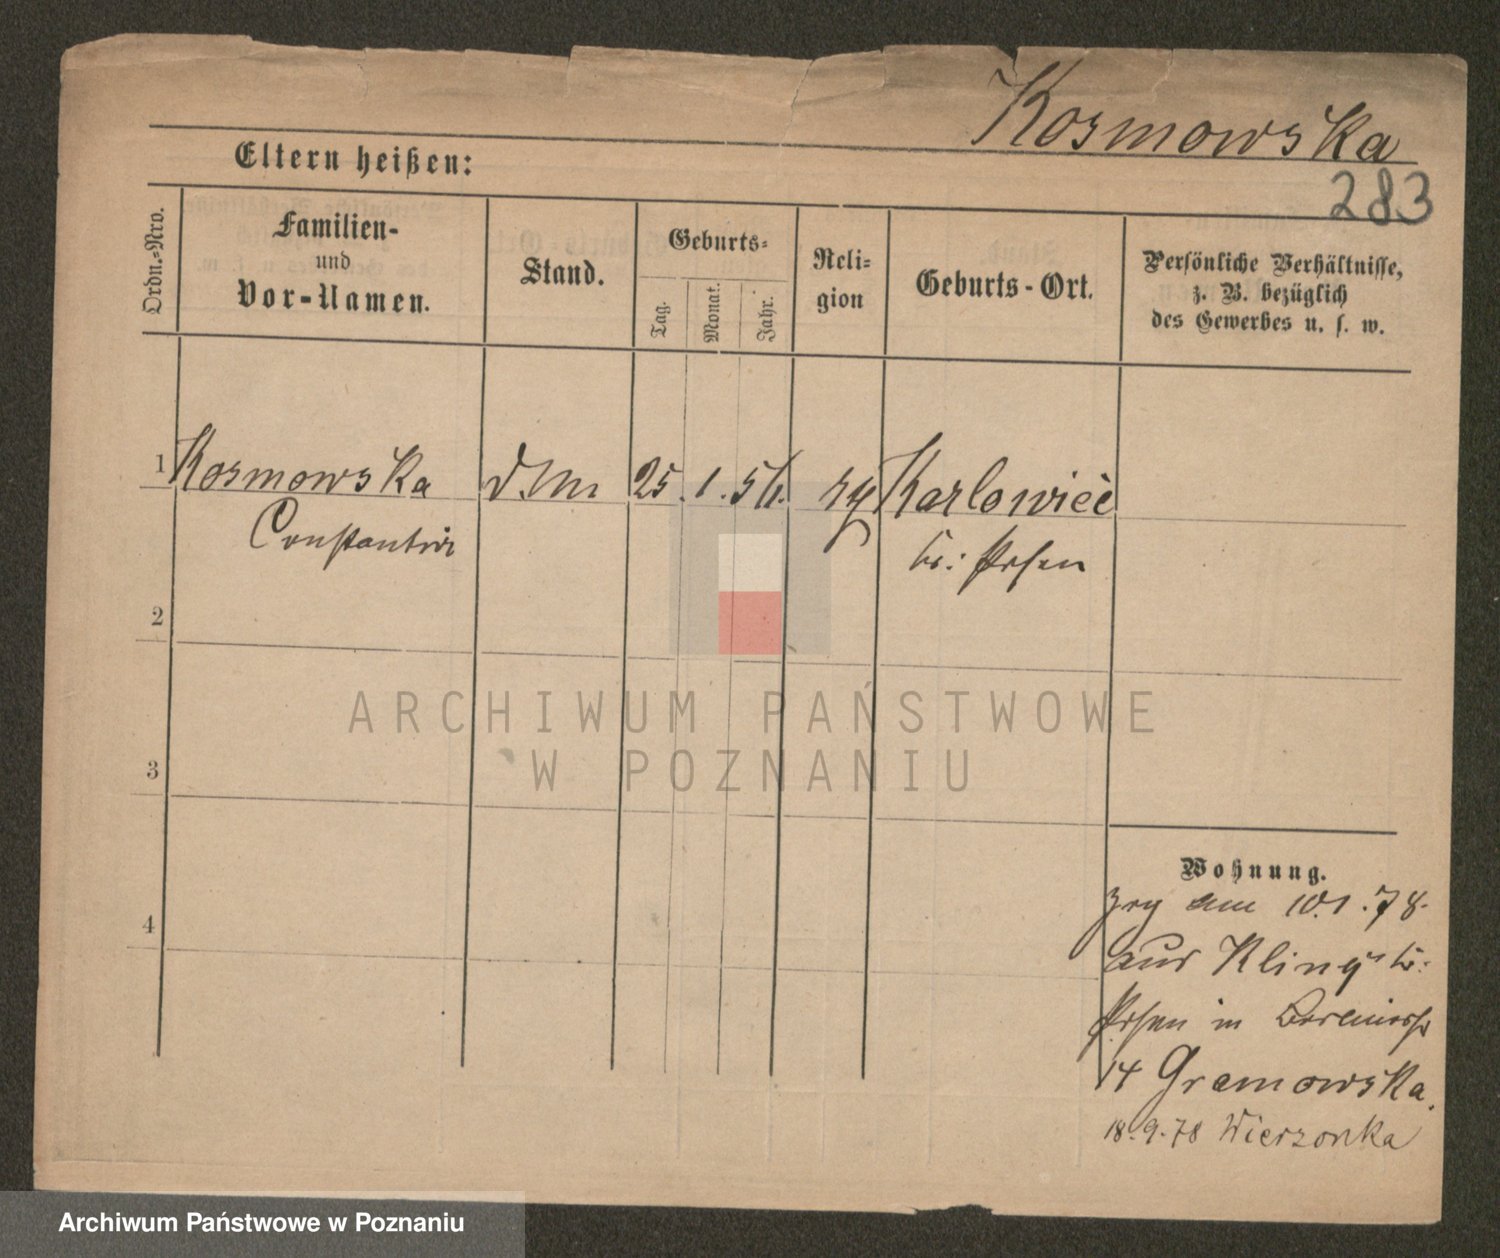 Kosmowska
283
Eltern heißen:
Ordn.-Nro.
Familien-
und
Vor-Namen.
Stand.
Geburts-
Tag.
Monat.
Jahr.
Reli-
gion
Geburts-Ort.
Persönliche Verhältnisse,
z. B. bezüglich
des Gewerbes u. s. w.
1 Kosmowska 25. 1. 56. Karlowiec
Constantin
Kr: Posen
2
3
4
ARCHIWUM PAŃSTWOWE
W POZNANIU
Wohnung.
zog am 10.1.78.
aus Kling Kr:
Posen in
14 Gramowska.
18.9.78 Wierzonka
Archiwum Państwowe w Poznaniu